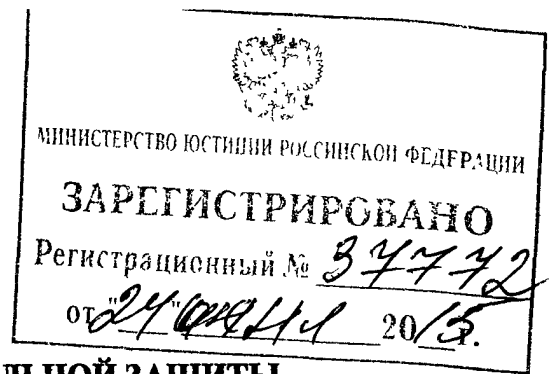 МИНИСТЕРСТВО ЮСТИЦИИ РОССИЙСКОЙ ФЕДЕРАЦИИ
ЗАРЕГИСТРИРОВАНО
Регистрационный № 37772
от "24" июня 2015 г.
ЛЬНОЙ ЗАЩИТЫ